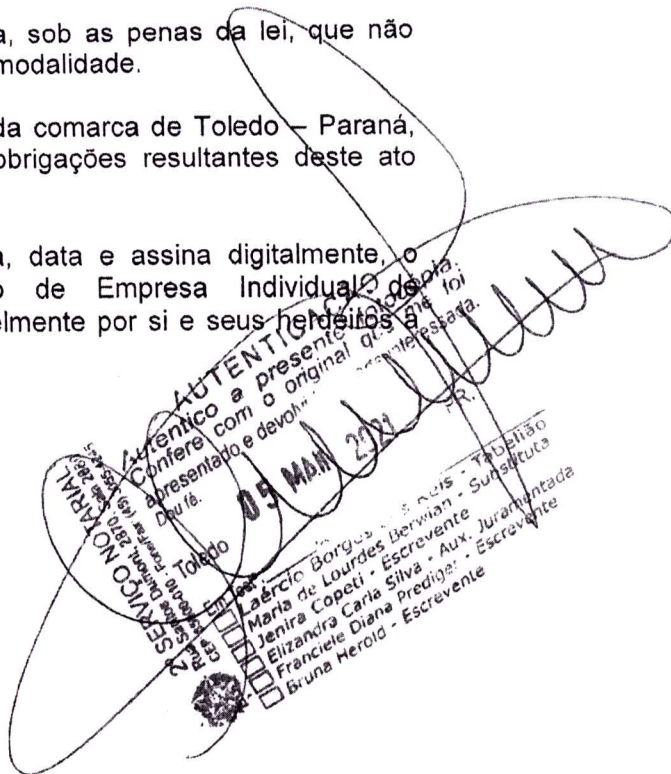 a, sob as penas da lei, que não
modalidade.
da comarca de Toledo – Paraná,
obrigações resultantes deste ato
a, data e assina digitalmente, o
o de Empresa Individual de
elmente por si e seus herdeiros a
AUTENTICAÇÃO
Autentico a presente fotocópia.
Confere com o original que me foi
apresentado e devolvi interessada.
Dou fé.
Toledo 05 2021 PR.
2º SERVIÇO NOTARIAL
Rua Santos Dumont, 2870, Sala
CEP Fone/Fax: (45)
Laércio Borges Reis - Tabelião
Maria de Lourdes Berwian - Substituta
Jenira Copeti - Escrevente
Elizandra Carla Silva - Aux. Juramentada
Franciele Diana Prediger - Escrevente
Bruna Herold - Escrevente